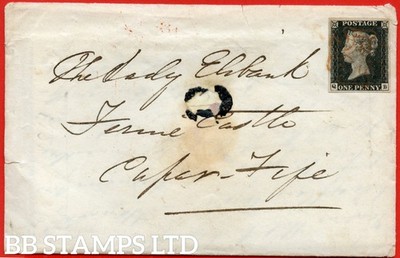 POSTAGE
ONE PENNY
The Lady Elibank
Castle
Cupar-Fife
BB STAMPS LTD